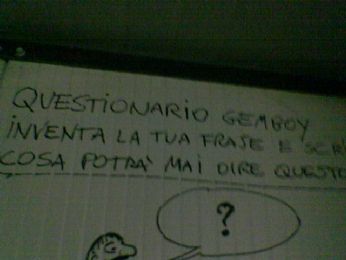 QUESTIONARIO GEMBOY
INVENTA LA TUA FRASE E SCRI
COSA POTRA' MAI DIRE QUESTO
?